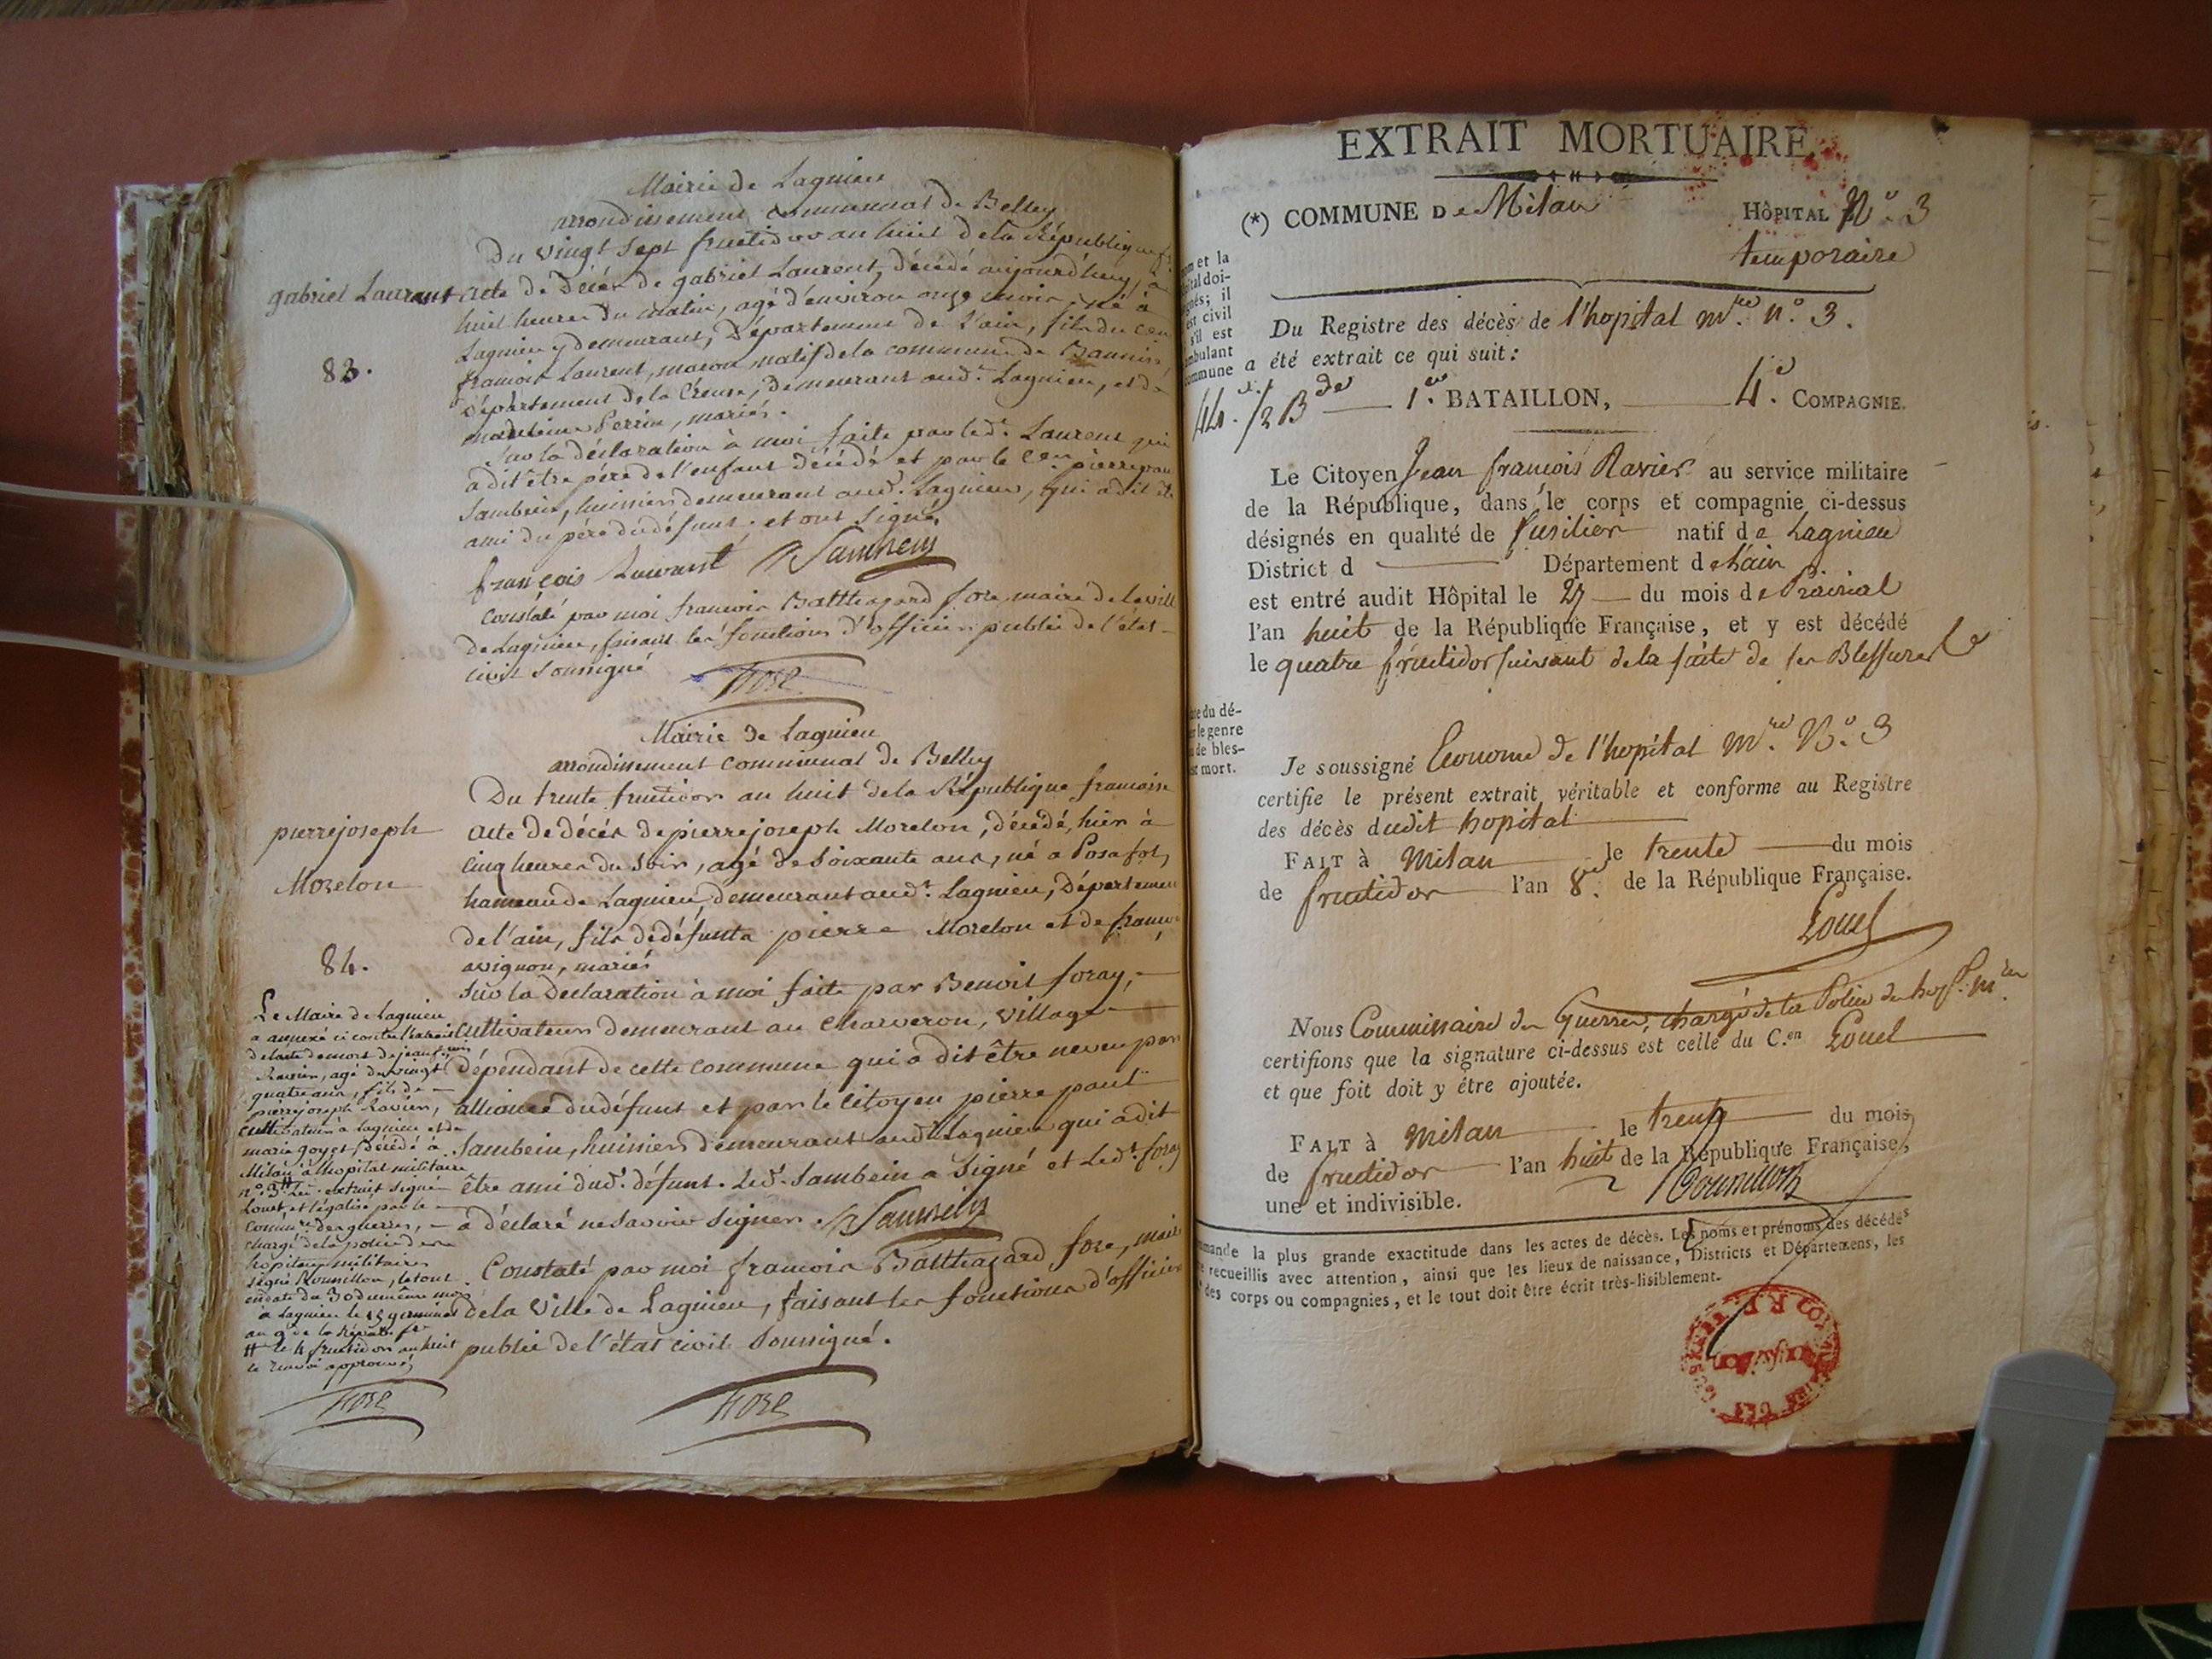 Mairie de Lagnieu
arrondissement communal de Belley
Du vingt sept fructidor an huit de la République
gabriel Laurent
83.
acte de Décès de gabriel Laurent, décédé aujourd'huy, à
huit heures du matin, agé d'environ onze mois, né à
Lagnieu y demeurant, Département de l'ain, fils du cen
francois Laurent, macon natif de la commune de
Département de la Creuse, demeurant aud.t Lagnieu, et de
madeleine Perrin, mariés.
Sur la déclaration à moi faite par led.t Laurent qui
a dit être père de l'enfant décédé et par le C.en pierre paul
Sambein, huissier demeurant aud.t Lagnieu, qui a dit être
ami du père du défunt. et ont signé.
françois Laurent Sambein
Constaté par moi francois Balthazard fore maire de la ville
de Lagnieu, faisant les fonctions d'officier public de l'état
civil soussigné
Fore
Mairie de Lagnieu
arrondissement communal de Belley
Du trente fructidor an huit de la République francoise
pierre joseph
Morelon
84.
acte de décès de pierre joseph Morelon, décédé, hier à
cinq heures du soir, agé de soixante ans, né a Posafol,
hameau de Lagnieu, demeurant aud.t Lagnieu, Département
de l'ain, fils de défunts pierre Morelon et de
avignon, mariés
Sur la declaration à moi faite par Benoit foray,
cultivateur demeurant au Charveron, village
dépendant de cette commune qui a dit être neveu par
alliance du défunt et par le Citoyen pierre paul
Sambein, huissier demeurant aud.t Lagnieu qui a dit
être ami dud.t défunt. Led.t Sambein a signé et Led.t foray
a déclaré ne savoir signer. Sambein
Constaté par moi francois Balthazard fore, maire
de la Ville de Lagnieu, faisant les fonctions d'officier
public de l'état civil soussigné.
Fore
Le Maire de Lagnieu
a annexé ci contre l'extrait
de l'acte de mort de jean f.cois
Ravier, agé de vingt
quatre ans, fils de
pierre joseph Ravier,
cultivateur a Lagnieu et de
marie goyet, décédé à
Milan à l'hopital militaire
n.o 3 # Led. extrait signé
Louet et légalisé par le
Commre. des guerres,
chargé de la police des
hopitaux militaires
signé Roumillon, le tout
en date du 30 du même mois
à Lagnieu le 15 germinal
an 9 de la Répub. fr
# le 4 fructidor an huit
le renvoi approuvé
Fore
EXTRAIT MORTUAIRE.
(*) COMMUNE De Milan HÔPITAL N.o 3
temporaire
m et la
tal doi-
nés; il
est civil
s'il est
mbulant
ommune
Du Registre des décès de l'hopital m.re n.o 3.
a été extrait ce qui suit:
44.e 1/2 B.de 1.er BATAILLON, 4.e COMPAGNIE.
Le Citoyen Jean francois Ravier au service militaire
de la République, dans le corps et compagnie ci-dessus
désignés en qualité de fusilier natif de Lagnieu
District d Département de Lain
est entré audit Hôpital le 27 du mois de Prairial
l'an huit de la République Française, et y est décédé
le quatre fructidor suivant de la suite de ses Blessures
te du dé-
r le genre
de bles-
st mort.
Je soussigné Econome de l'hopital m.re N.o 3
certifie le présent extrait véritable et conforme au Registre
des décès dudit hopital
FAIT à Milan le trente du mois
de fructidor l'an 8.e de la République Française.
Louet
Nous Commissaire des Guerres, chargé de la Police des hop. m.res
certifions que la signature ci-dessus est celle du C.en Louet
et que foit doit y étre ajoutée.
FAIT à Milan le trente du mois
de fructidor l'an huit de la République Française,
une et indivisible. Roumillon
mande la plus grande exactitude dans les actes de décès. Les noms et prénoms des décédés
recueillis avec attention, ainsi que les lieux de naissance, Districts et Départemens, les
des corps ou compagnies, et le tout doit être écrit très-lisiblement.